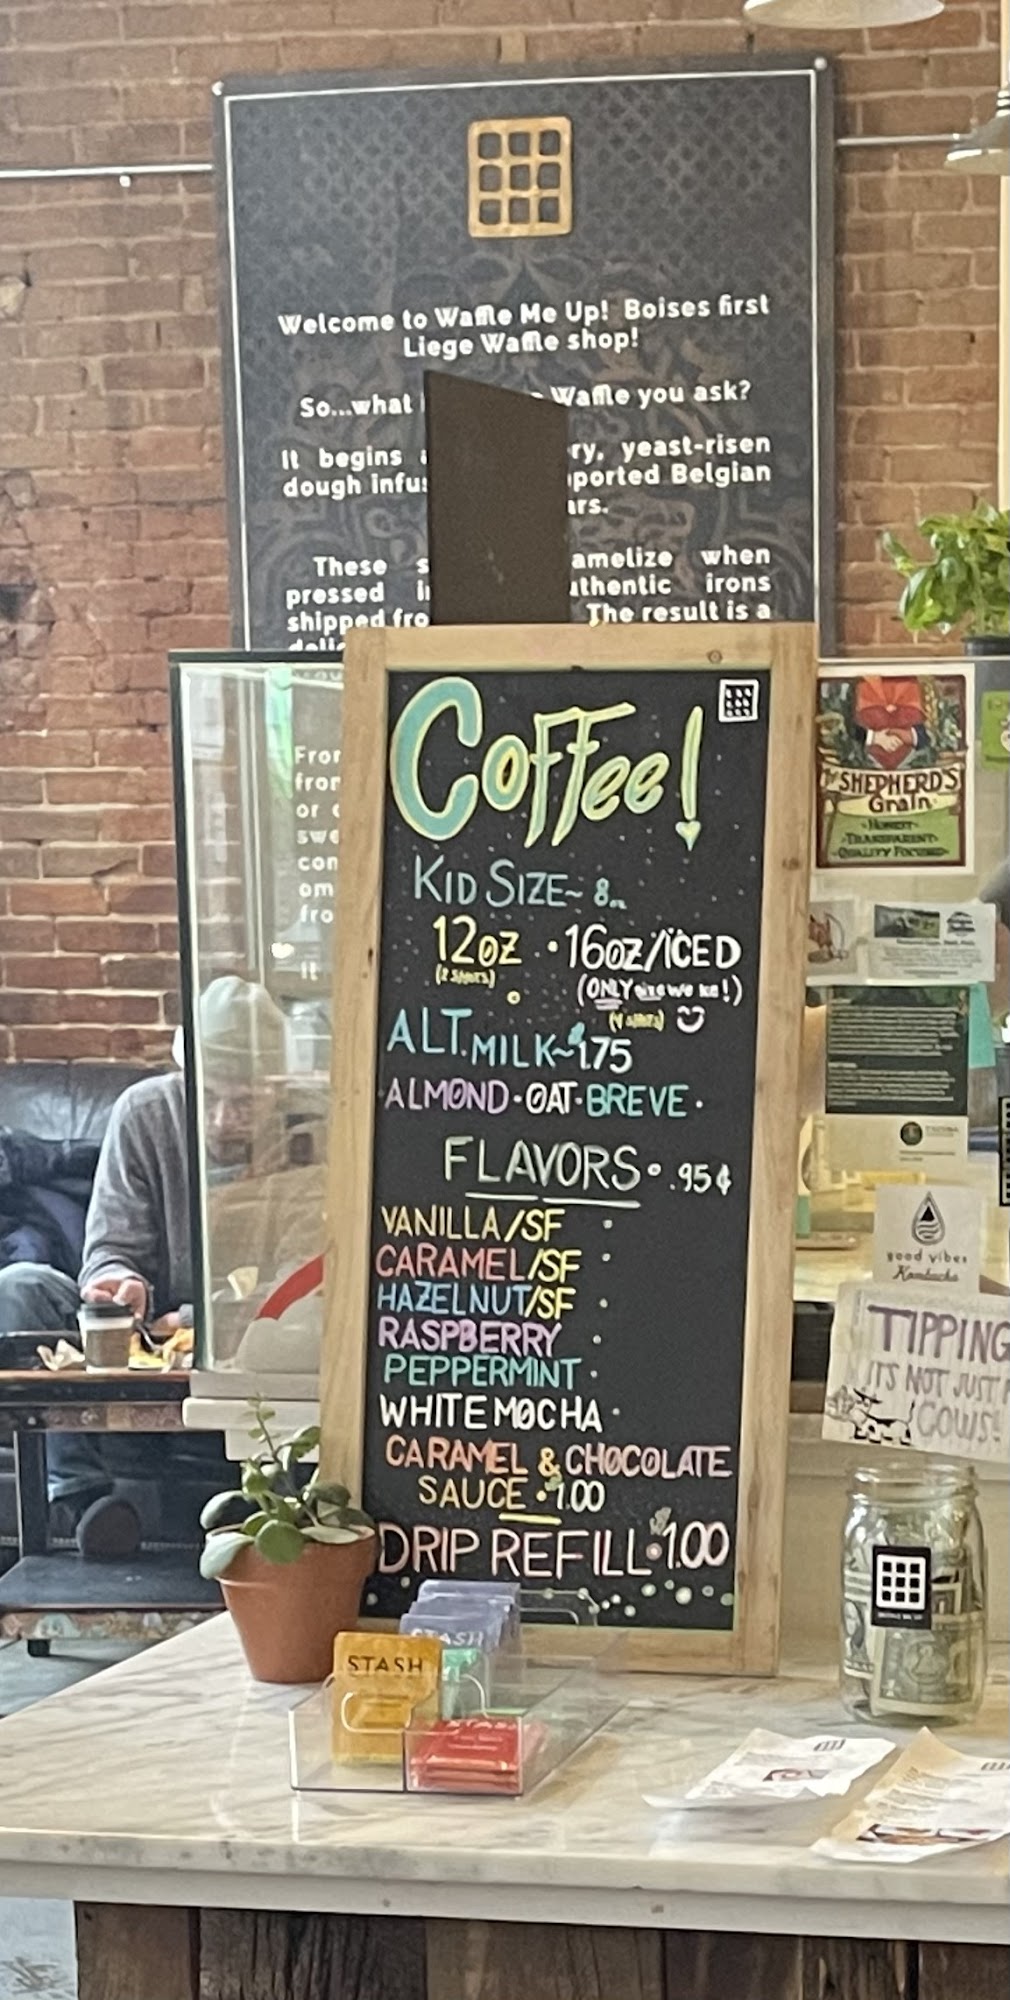 Welcome to Waffle Me Up! Boises first
Liege Waffle shop!
So...what Waffle you ask?
It begins ry, yeast-risen
dough infus ported Belgian
ars.
These s amelize when
pressed i uthentic irons
shipped fro The result is a
From
from
or
swe
con
om
fro
it
Coffee!
KID SIZE~ 8oz
12oz · 16oz/ICED
(2 SHOTS) (ONLY size we ice!)
(4 SHOTS)
ALT. MILK~ 1.75
ALMOND·OAT·BREVE·
FLAVORS • .95¢
VANILLA/SF
CARAMEL/SF
HAZELNUT/SF
RASPBERRY
PEPPERMINT
WHITE MOCHA
CARAMEL & CHOCOLATE
SAUCE • 1.00
DRIP REFILL • 1.00
SHEPHERD'S
Grain
HONEST
TRANSPARENT
QUALITY FOCUSED
good vibes
Kombucha
TIPPING
IT'S NOT JUST F
COWS!
STASH
STASH